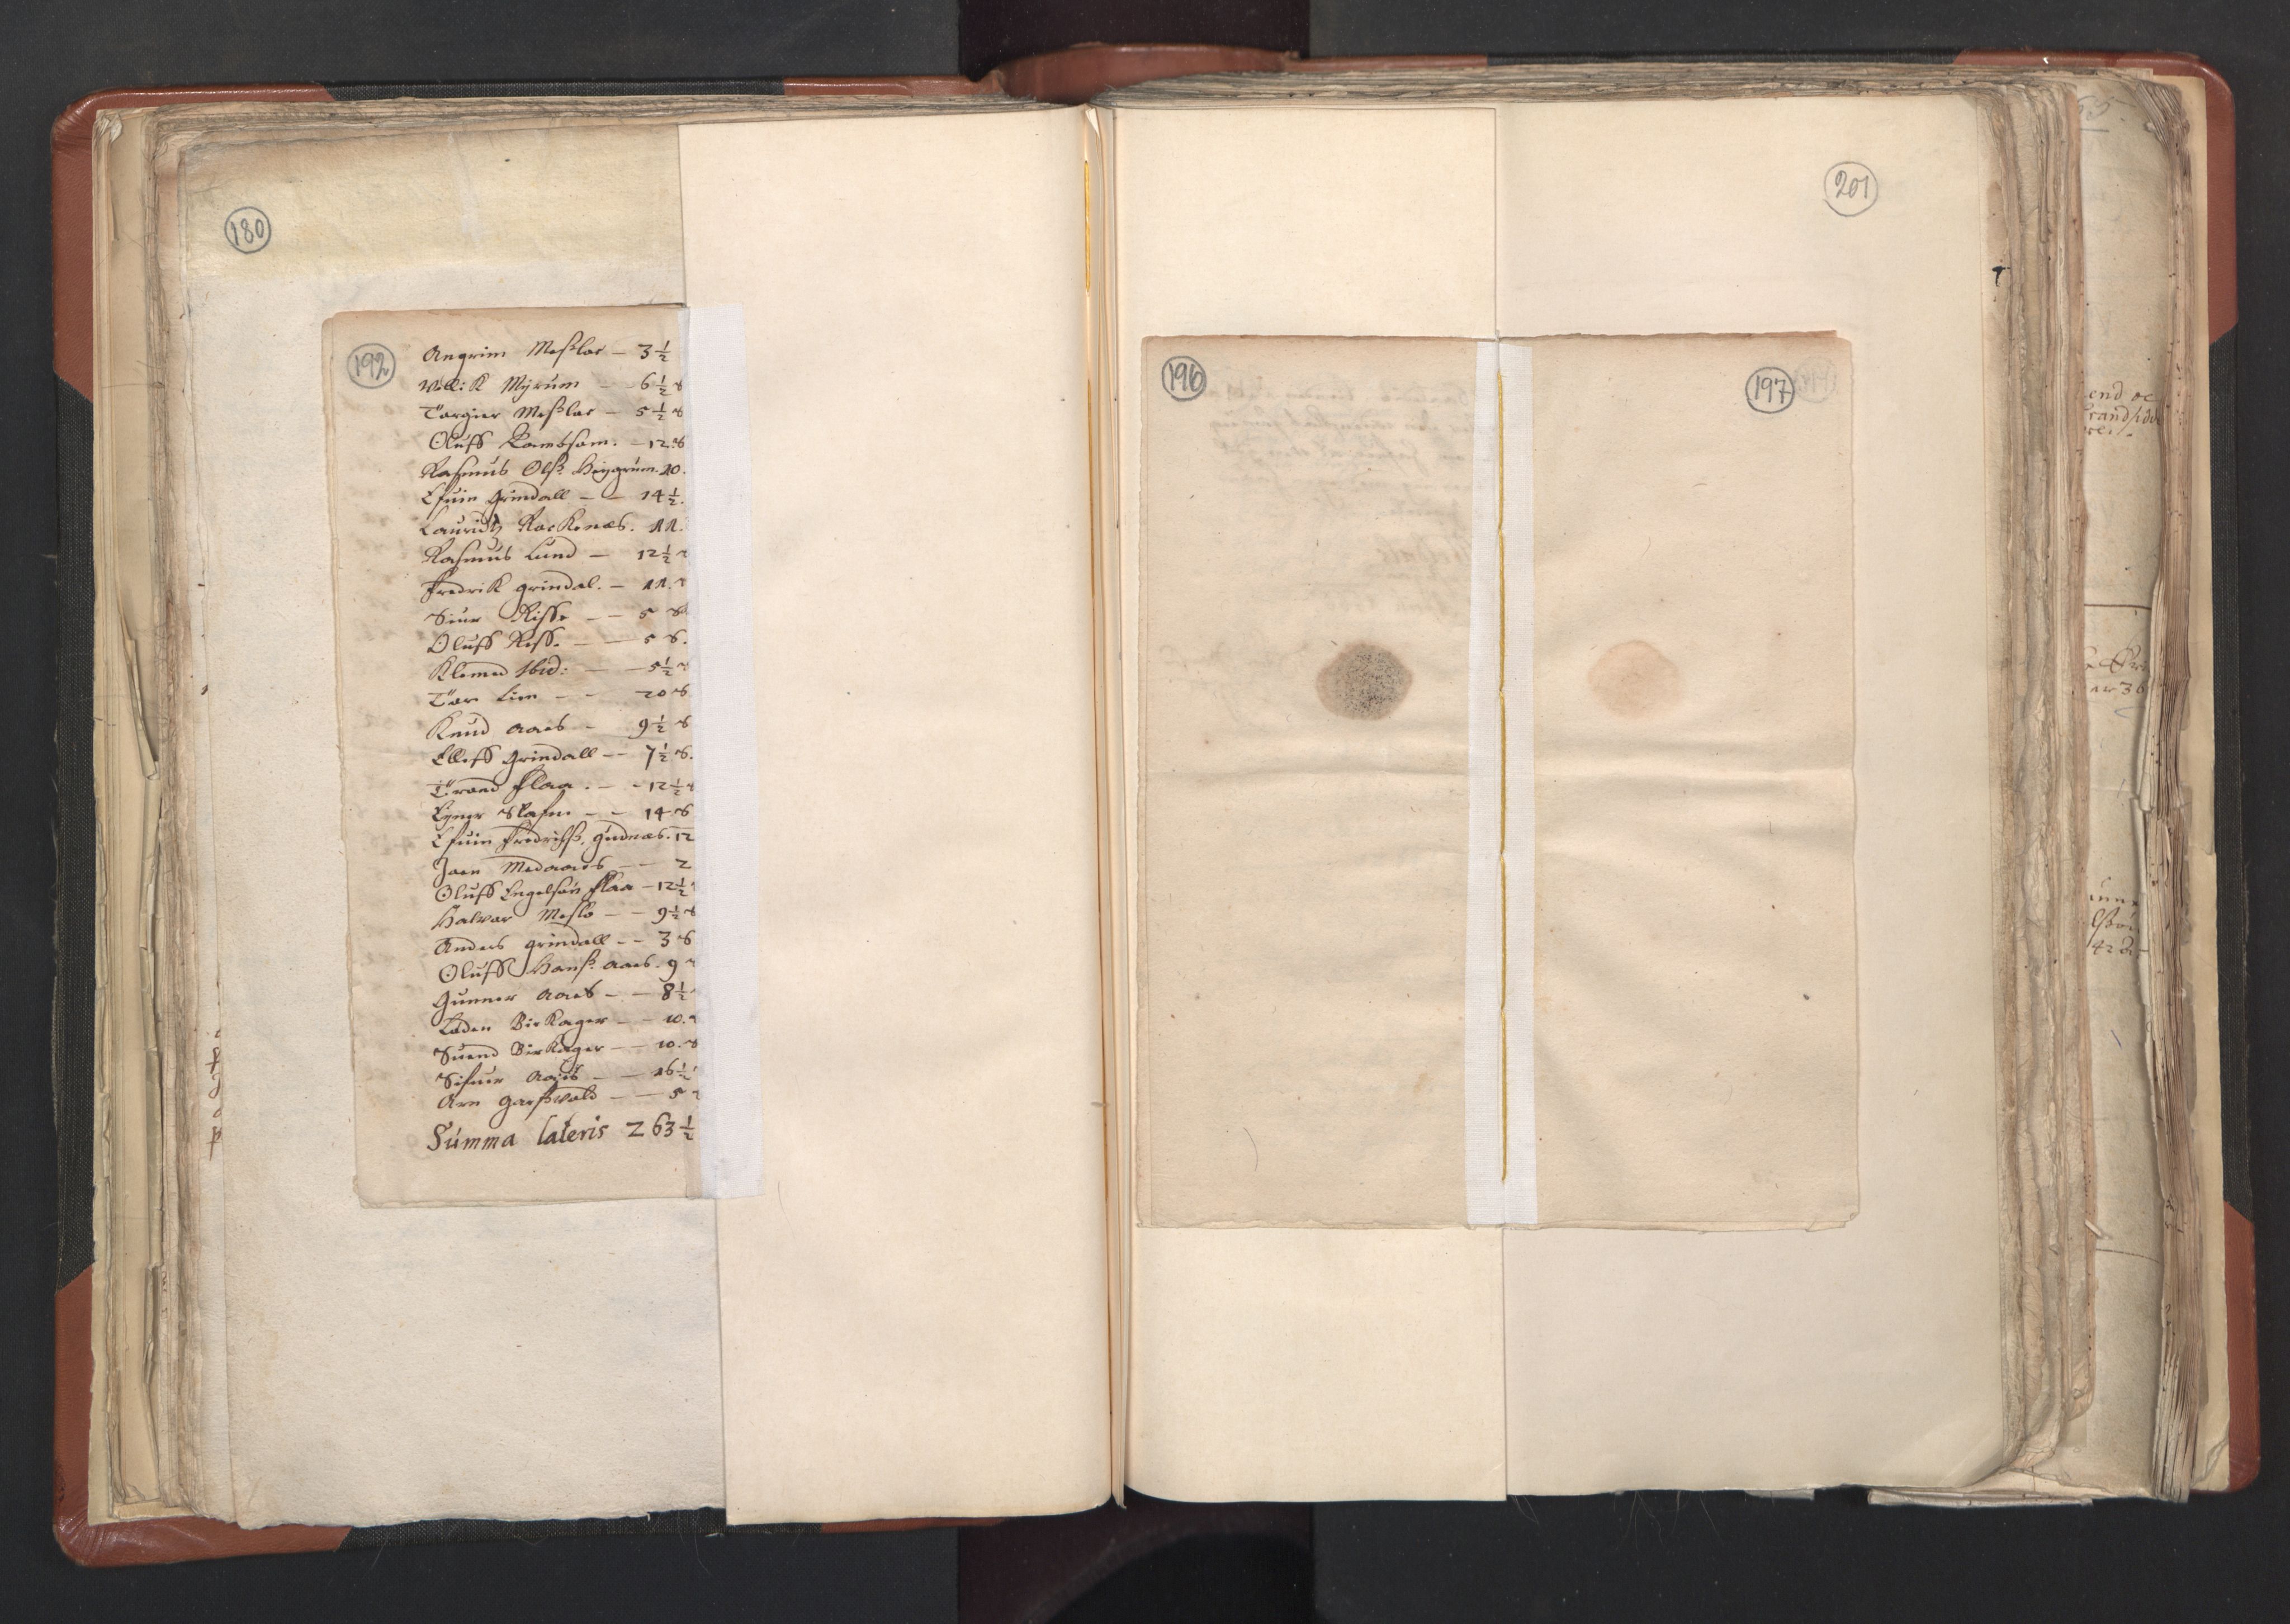 180
192
Angrim Meßloe – 3½
Will: K Myrum – – 6½ s
Torgier Meßloe – 5½ s
Oluff Rambsøm. – 12. s
Raßmus Olß: Høygrum. 10.
Efuin Grindall – – 14½.
Lauridtz Rackenæs. 11.
Rasmus Lund – 12½
Fredrik grindal. – 11.
Siur Risse – – 5 s
Oluff Riss. – – 5 s.
Klemed Ibid: – – 5½
Tor Lien – – 20 s
Knud Aaes – 9½ s
Elleff Grindall – – 7½ s.
Trond Flaa. – – 12½
Eyner Skafn – – 14 s
Efuin Fredrichß. gudnæs. 12
Joen Medaaes – – 2
Oluff Engelsøn Flaa – 12½
Halvor Meslo – – 9½ s
Anders grindall – – 3 s
Oluff Hanß: Aaes. 9
Gunner Aaes – – 8½
Loden Birkager – – 10.
Suend Birkager – – 10. s
Sifuer Aaes – – 16½
Arn Garßvold – – 5
Summa lateris 263½
201
196
197